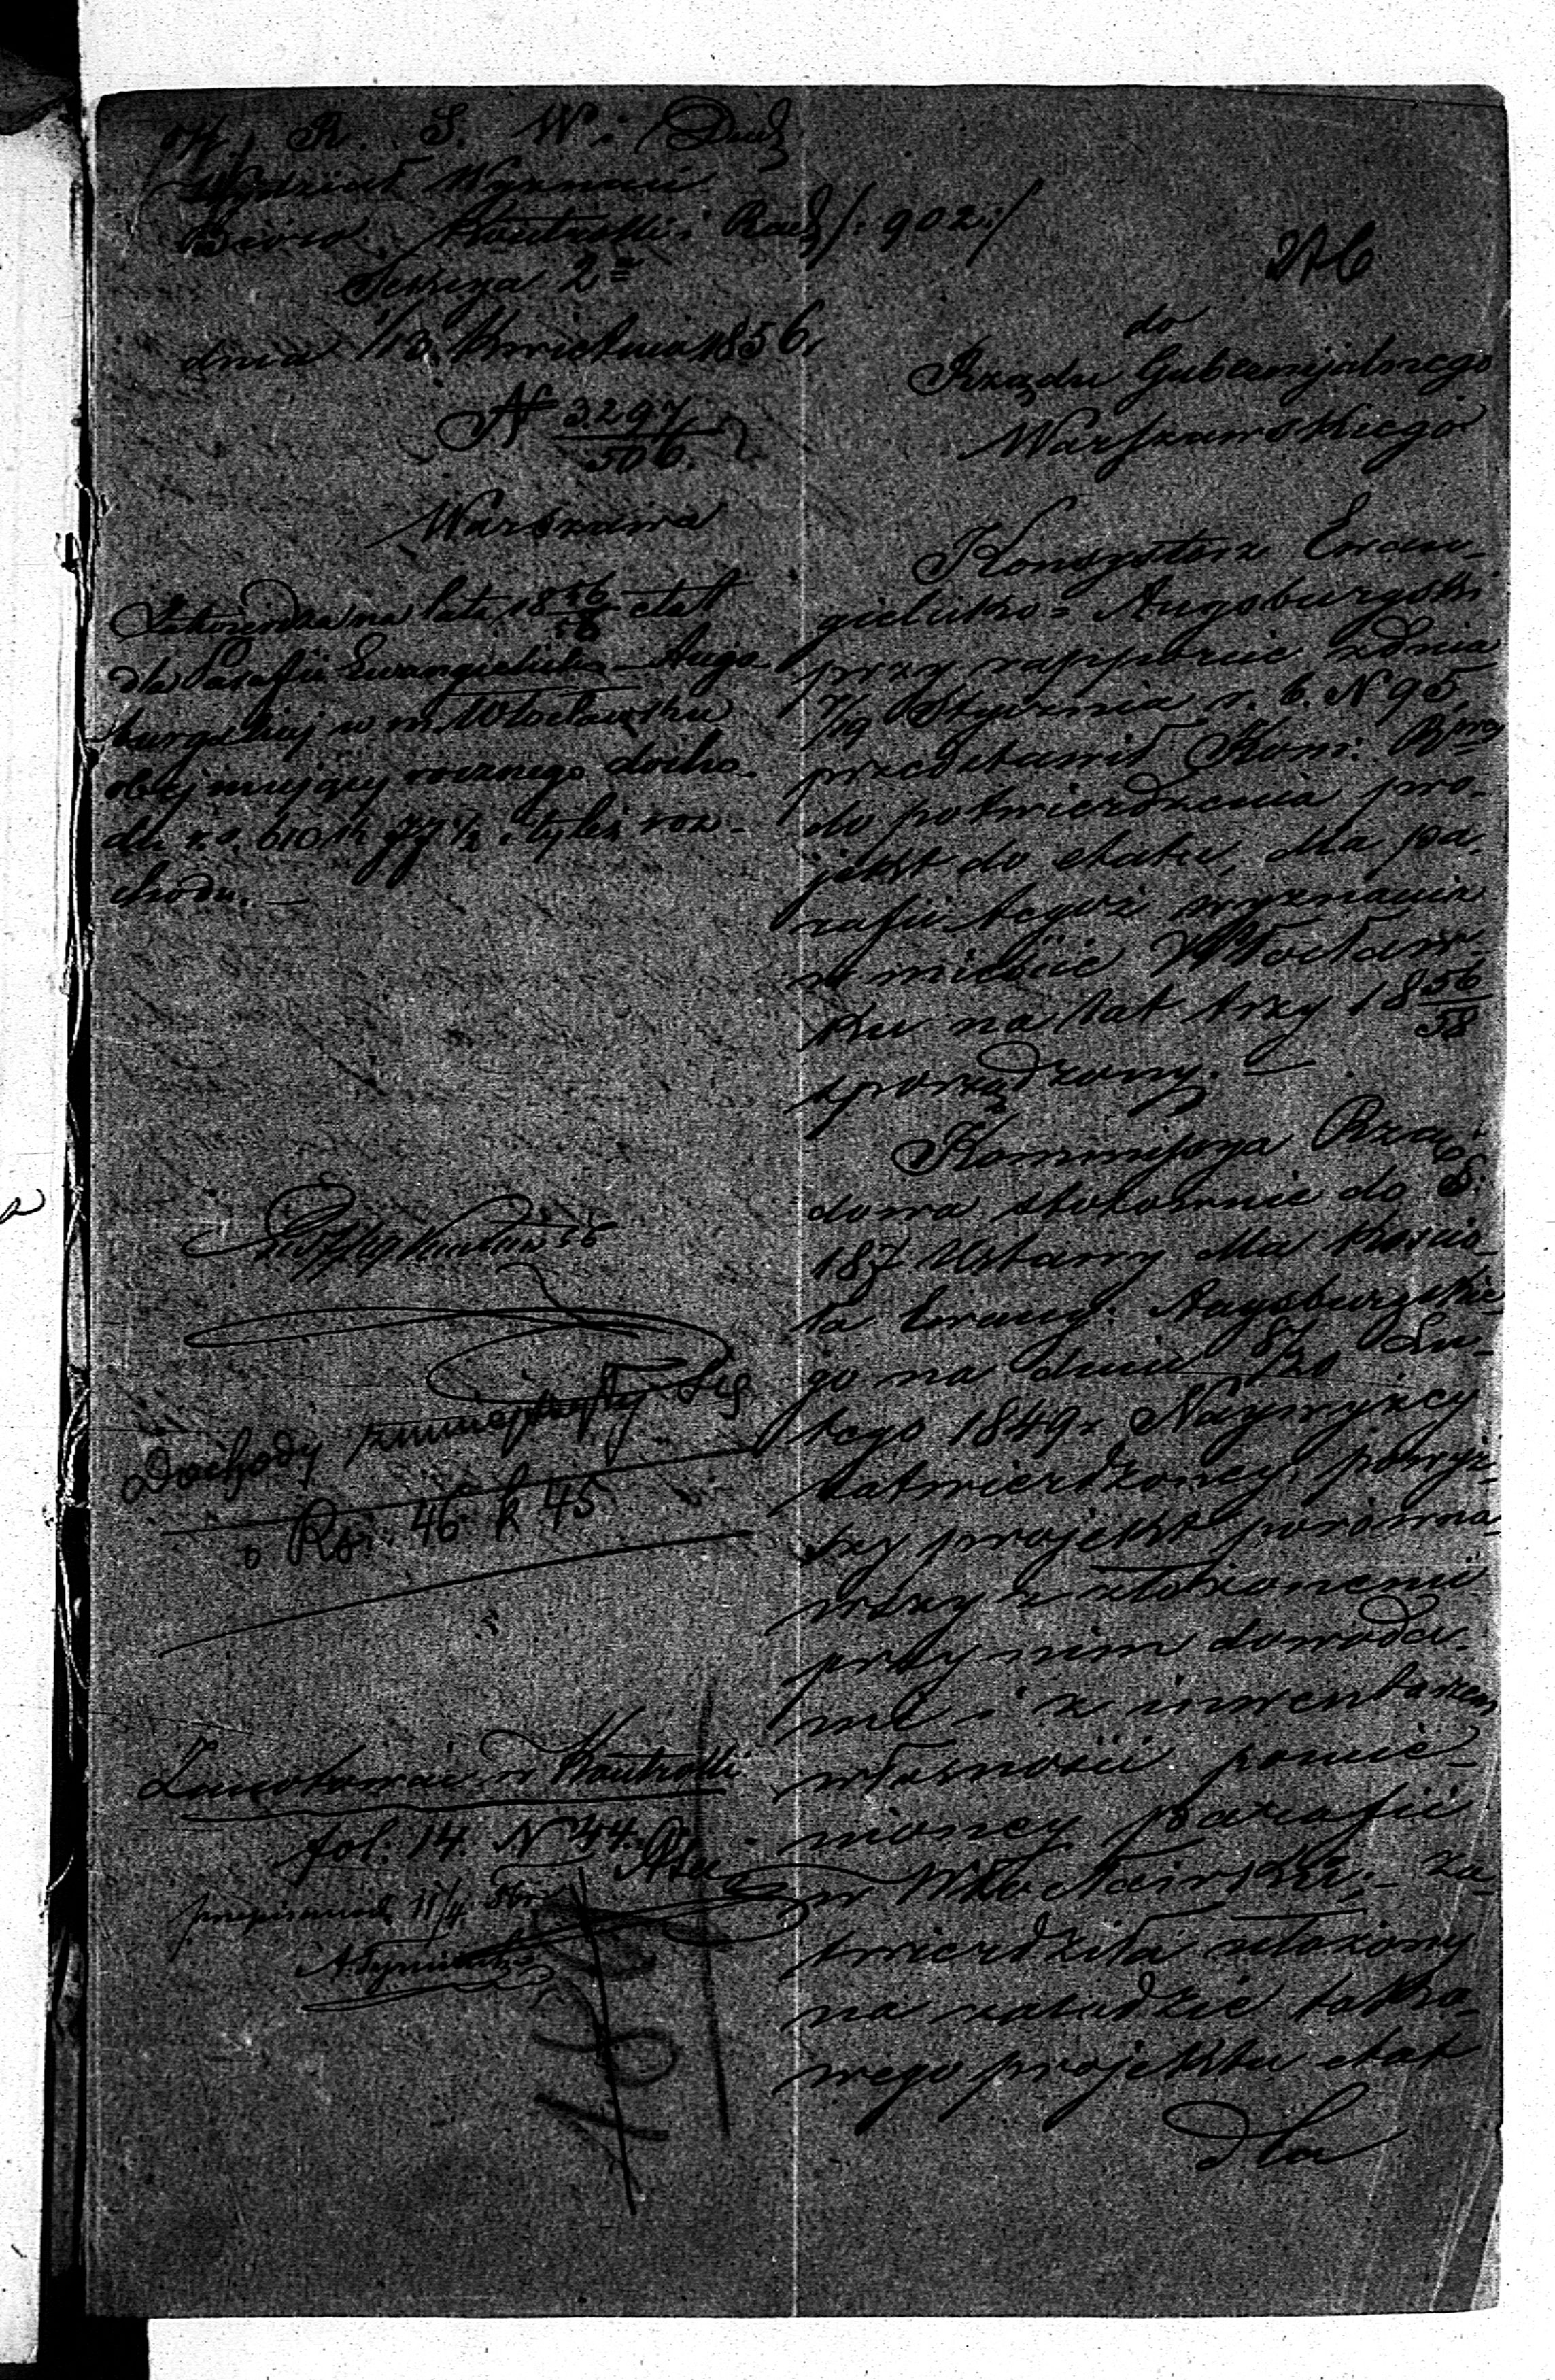 K. R. S. W. i Duch
Wydział Wyznań
Biuro Kontrolli i Rach /: 902 :/
Sekcya 2a
dnia 1/13 Kwietnia 1856
N 3297/506
Warszawa
na lata 1856/58 etat
dla Parafii Ewangielicko-Augs-
burgskiej w m. Włocławku
obejmujący rocznego docho-
du r.s. 610 k 77 1/2 i tyleż roz-
chodu. —
Dochody zmniejszyły się
o Rsr. 46 k 45
Zanotować w Kontrolli
fol. 14. N 44.
przepisano 11/4 56
do
Rządu Gubernijalnego
Warszawskiego
Konsystorz Ewan-
gielicko-Augsburgski
przy rapporcie z dnia
7/19 Stycznia r. b. N 95,
przedstawił Kom: Rząd
do potwierdzenia pro-
jekt do etatu, dla pa-
rafii tegoż wyznania
w mieście Włocław-
ku na lat trzy 1856/58
sporządzony. —
Kommissya Rzą-
dowa stosownie do §.
187 Ustawy dla Kościo-
ła Ewang. Augsburgskie-
go na dniu 8/20 Lu-
tego 1849 r. Najwyżey
zatwierdzoney, powyż-
szy projekt porówna-
wszy z złożonemi
przy nim dowoda-
mi i z inwentarzem
własności pomie-
nioney parafii
w Włocławku; — za-
twierdziła ułożony
na zasadzie tako-
wego projektu etat
dla